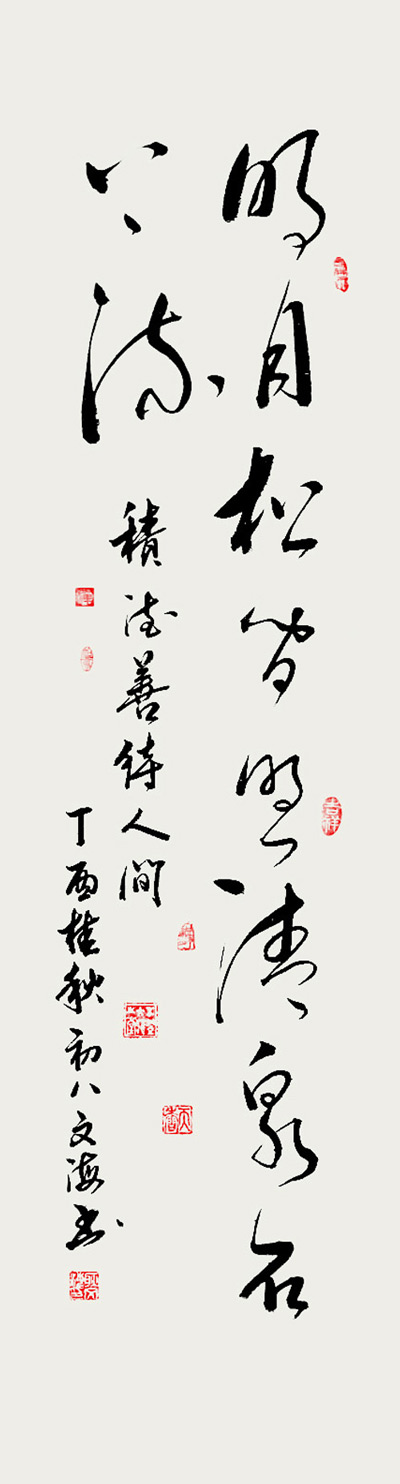 明月松间照清泉石
上流
積德善待人间
丁酉桂秋初八文海书
吉祥